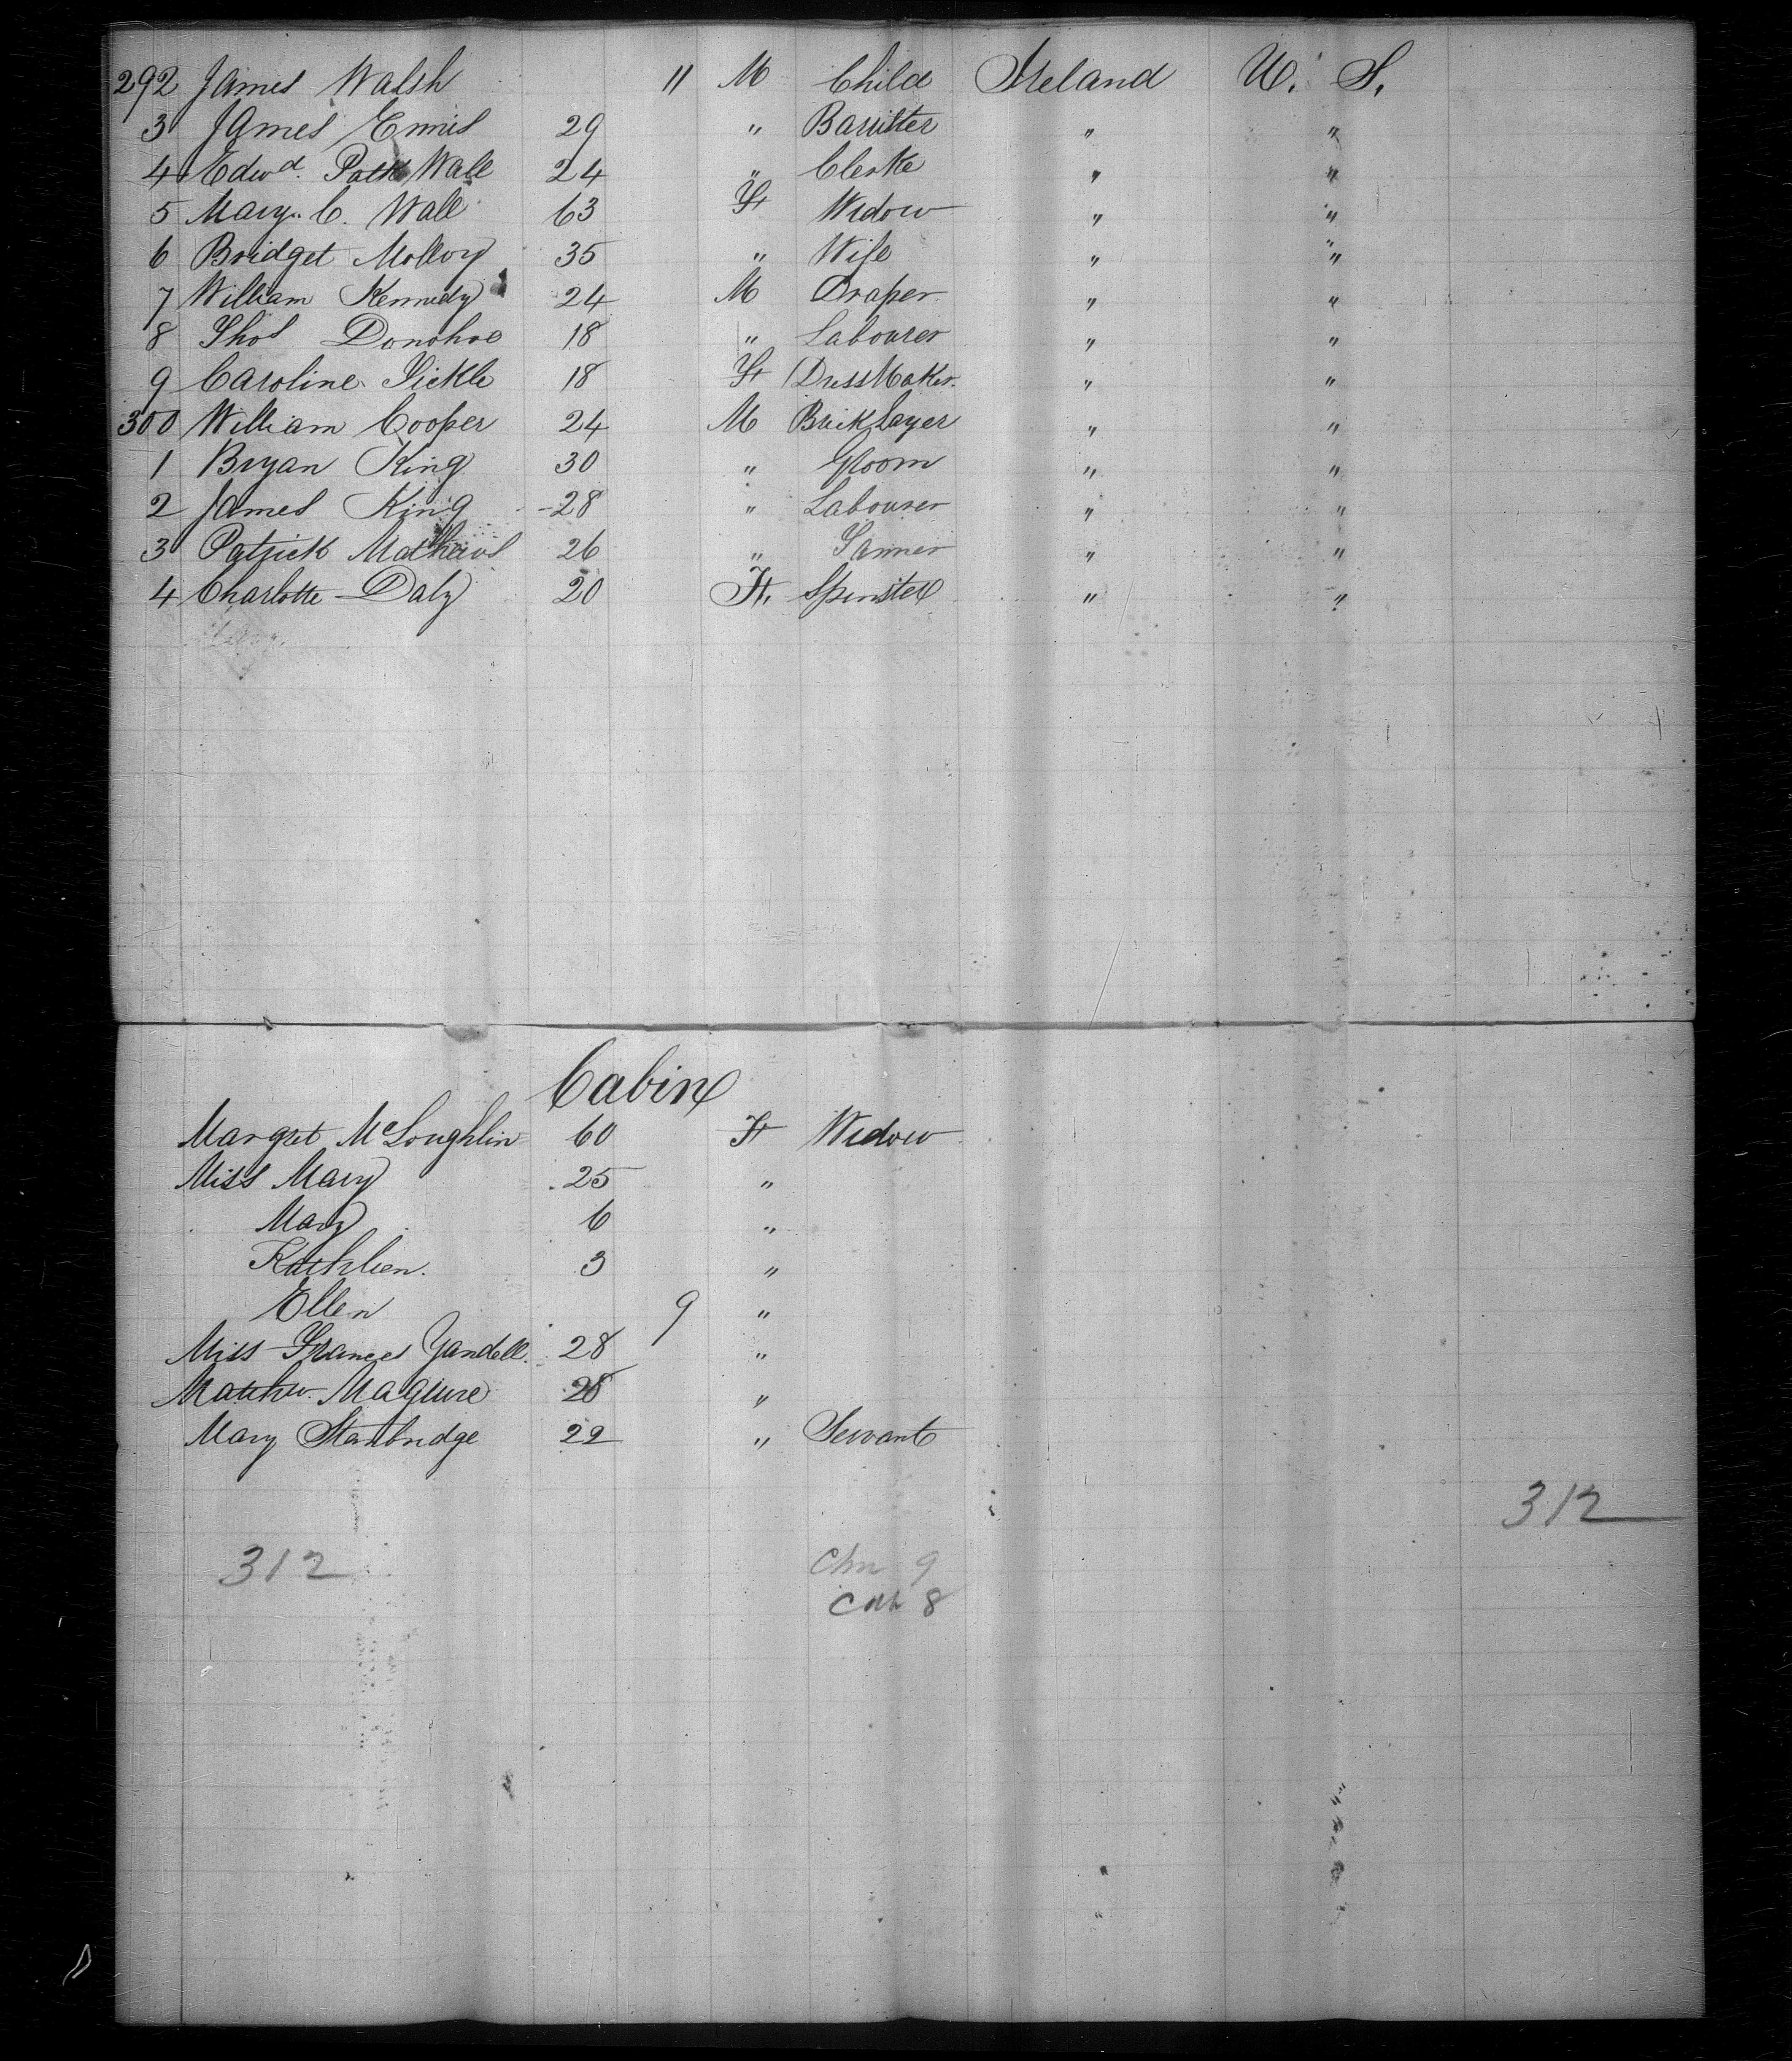 292 James Walsh 11 M Child Ireland U. S.
3 James Ennis 29 " Barrister " "
4 Edwd. Patk Wall 24 " Clerke " "
5 Mary. C. Wall 63 F Widow " "
6 Bridget Molloy 35 " Wife " "
7 William Kennedy 24 M Draper " "
8 Thos Donohoe 18 " Labourer " "
9 Caroline Sickle 18 F DressMaker. " "
300 William Cooper 24 M BrickLayer " "
1 Bryan King 30 " Groom " "
2 James King 28 " Labourer " "
3 Patrick Mathews 26 " Tanner " "
4 Charlotte Daly 20 F. Spinster " "
Cabin
Margret McLoughlin 60 F Widow
Miss Mary 25 "
Mary 6 "
Kathleen. 3 "
Ellen 9 "
Miss Frances Yandell. 28 "
Matthw. Maguire 28 "
Mary Stanbridge 22 " Servant
312
312 Chn 9
Cab 8